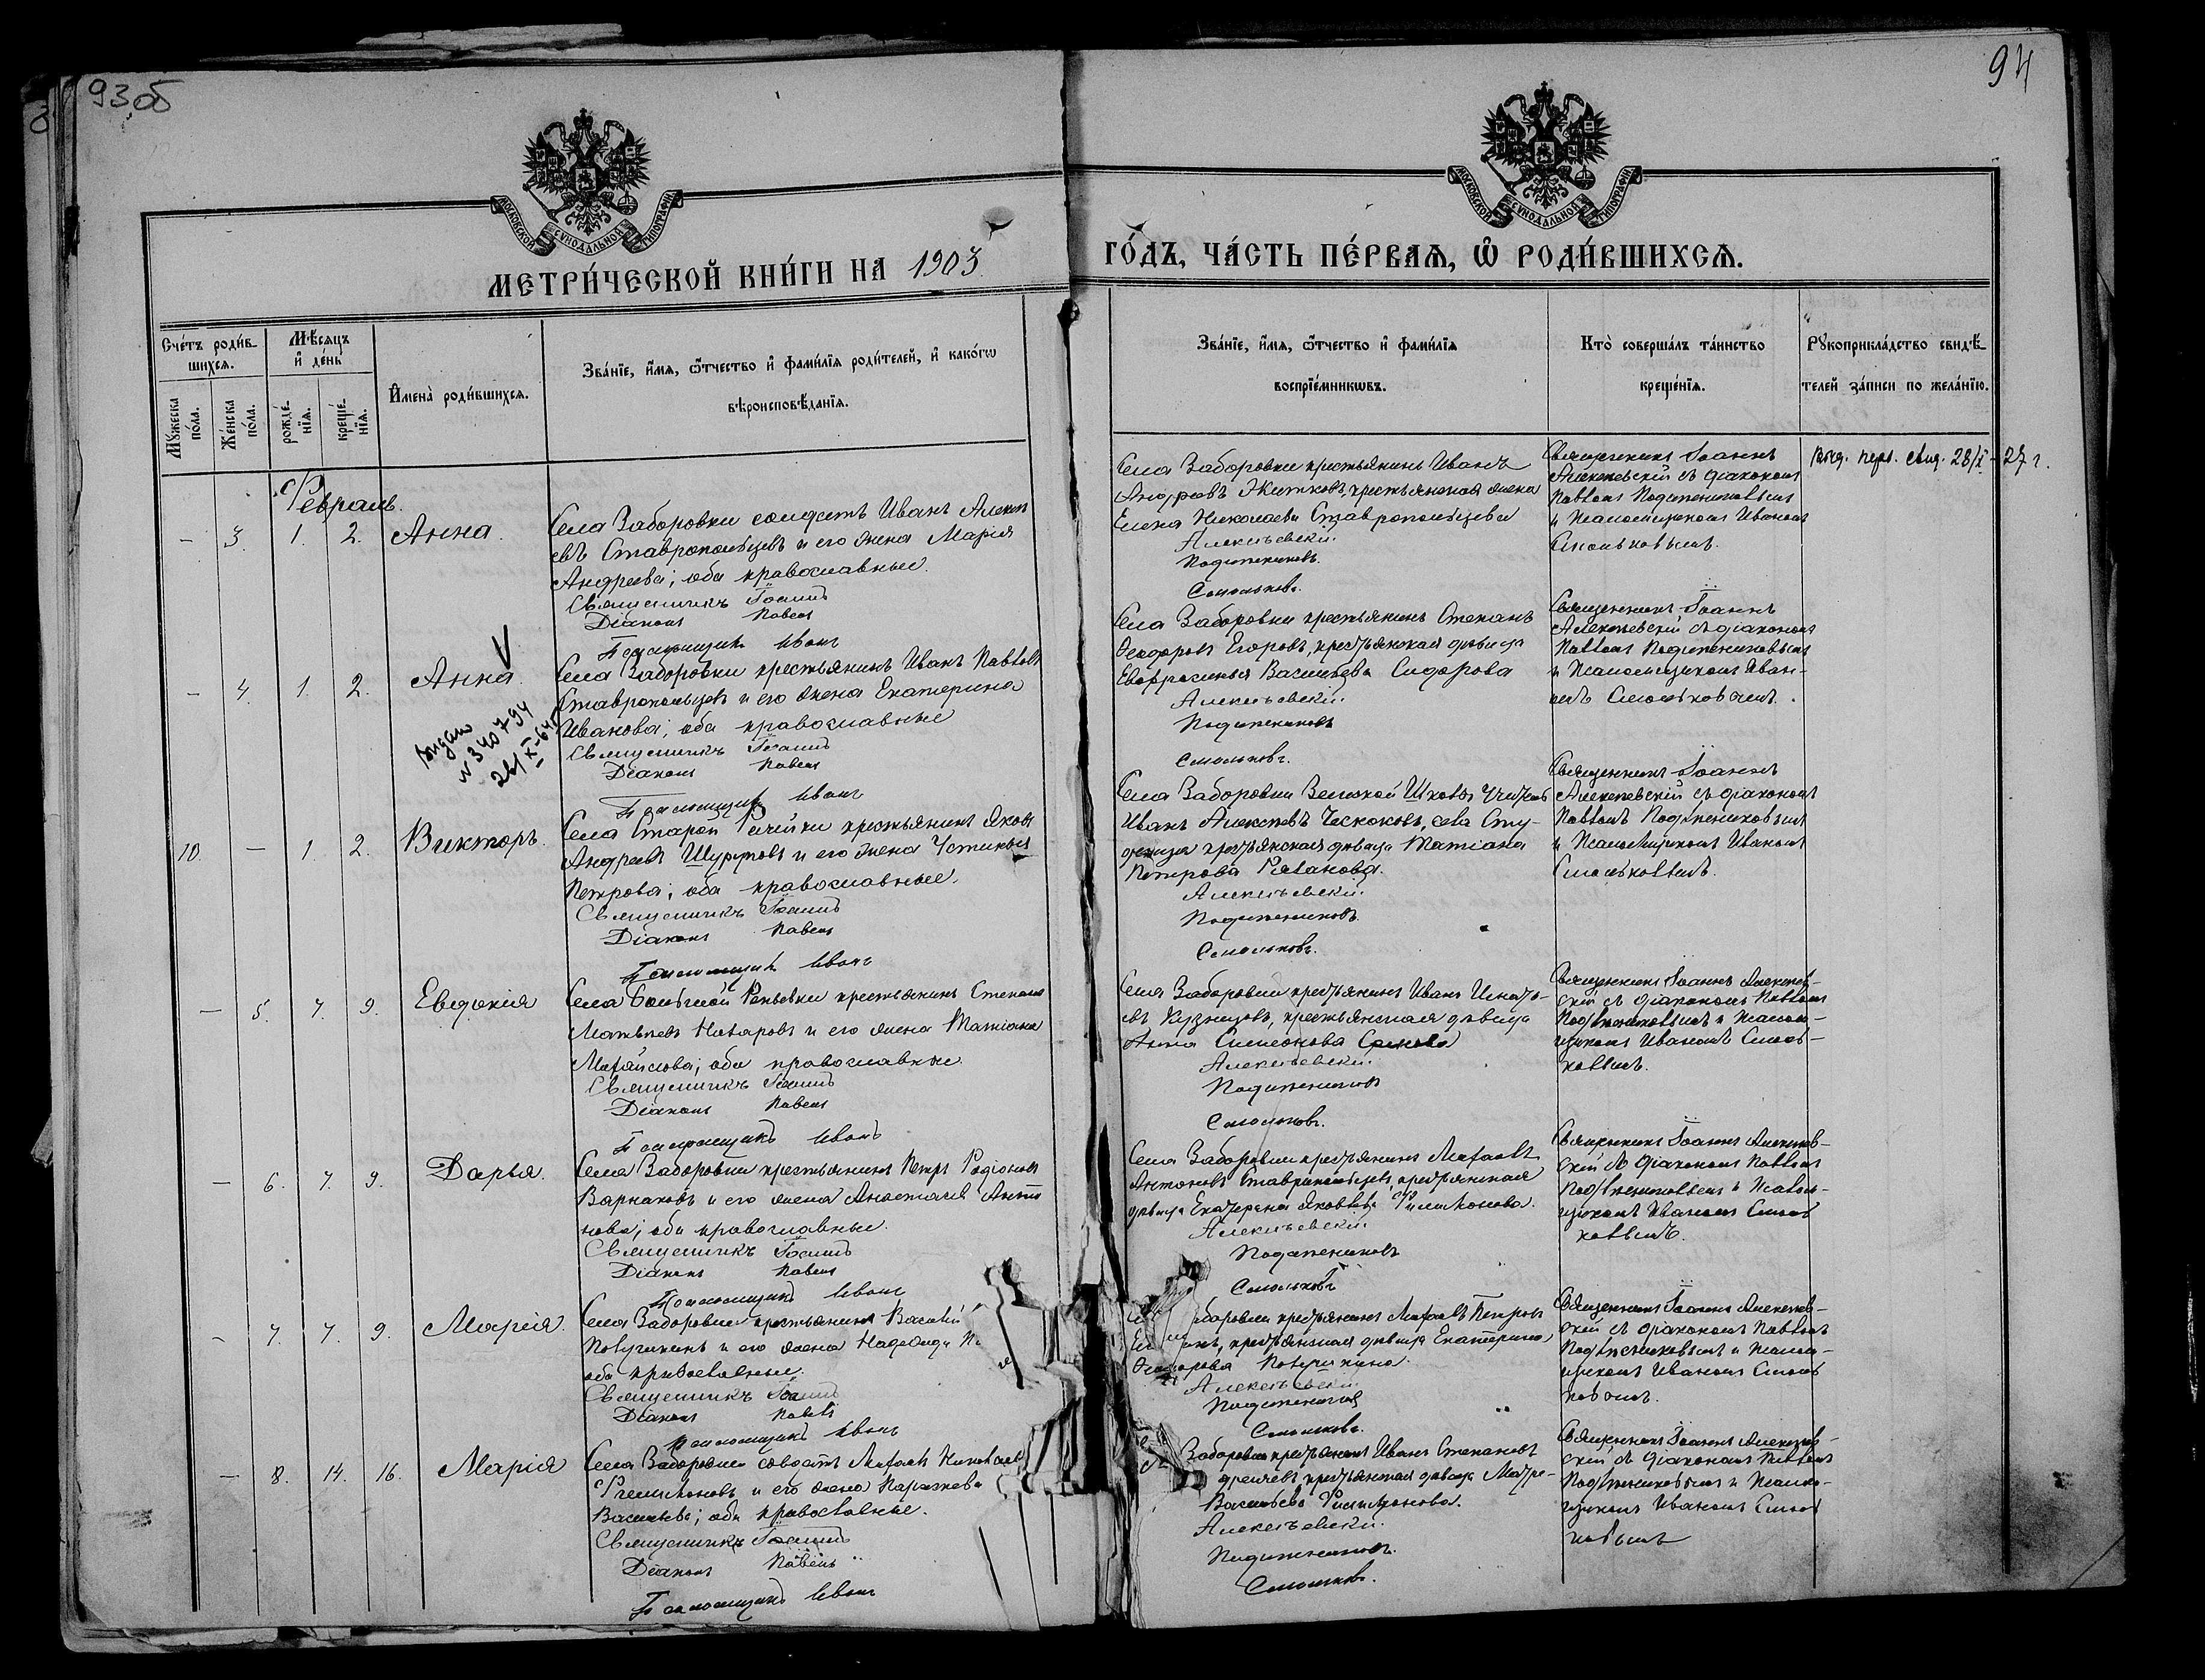 93 об
94
МОСКОВСКОЙ СѴНОДАЛЬНОЙ ТИПОГРАФІИ
МОСКОВСКОЙ СѴНОДАЛЬНОЙ ТИПОГРАФІИ
МЕТРИ́ЧЕСКОЙ КНИ́ГИ НА 1903
ГО́ДЪ, ЧА́СТЬ ПЕ́РВАѦ, Ѡ҆ РОДИ́ВШИХСѦ.
Сче́тъ роди́в-
шихсѧ.
Мꙋжеска по́ла.
Же́нска по́ла.
Мѣ́сѧцъ
и҆ де́нь
рожде́-
нїѧ.
креще́-
нїѧ.
И҆мена̀ роди́вшихсѧ.
Зва́нїе, и҆́мѧ, ѻ҆́тчество и҆ фами́лїѧ роди́телей, и҆ како́гѡ
вѣроисповѣ́данїѧ.
Зва́нїе, и҆́мѧ, ѻ҆́тчество и҆ фами́лїѧ
воспрїе́мникѡвъ.
Кто̀ соверша́лъ та́инство
креще́нїѧ.
Рꙋкоприкла́дство свидѣ́-
телей за́писи по жела́нїю.
Февраль.
- 3. 1. 2. Анна.
Села Заборовки солдатъ Иванъ Алексѣ
евъ Ставропольцевъ и его жена Марія
Андреева; оба православные.
Священникъ Іоаннъ
Діаконъ Павелъ
Псаломщикъ Иванъ
Села Заборовки крестьянинъ Иванъ
Андреевъ Житковъ, крестьянская жена
Елена Николаева Ставропольцева
Алексѣевскій.
Подтяжениковъ.
Смольковъ.
Священникъ Іоаннъ
Алексѣевскій съ діакономъ
Павломъ
и Псаломщикомъ Иваномъ
Смольковымъ.
выд. перв. свид. 28/X - 27 г.
- 4. 1. 2. Анна V
Выдано
№ 340794
Села Заборовки крестьянинъ Иванъ Павловъ
Ставропольцевъ и его жена Екатерина
Иванова; оба православные
Священникъ Іоаннъ
Діаконъ Павелъ
Псаломщикъ Иванъ
Села Заборовки крестьянинъ Степанъ
Ѳеодоровъ Егоровъ, крестьянская дѣвица
Евфросинья Васильева Сидорова
Алексѣевскій.
Смольковъ.
Священникъ Іоаннъ
Алексѣевскій съ діакономъ
Павломъ
и Псаломщикомъ Иван-
омъ Смольковымъ.
10. - 1. 2. Викторъ.
Села Старой Рачейки крестьянинъ Яковъ
Андреевъ Шуруповъ и его жена Устинья
Петрова; оба православные.
Священникъ Іоаннъ
Діаконъ Павелъ
Псаломщикъ Иванъ
Села Заборовки Земской Школы Учитель
Иванъ Алексѣевъ Чесноковъ, села Сту-
денца крестьянская дѣвица Татіана
Петрова
Алексѣевскій.
Смольковъ.
Священникъ Іоаннъ
Алексѣевскій съ діакономъ
Павломъ
и Псаломщикомъ Иваномъ
Смольковымъ.
- 5. 7. 9. Евдокія
Села Большой Репьевки крестьянинъ Степанъ
Матвѣевъ Назаровъ и его жена Татіана
Михайлова; оба православные.
Священникъ Іоаннъ
Діаконъ Павелъ
Псаломщикъ Иванъ
Села Заборовки крестьянинъ Иванъ Игнать-
евъ Кузнецовъ, крестьянская дѣвица
Анна Симеонова
Алексѣевскій.
Смольковъ.
Священникъ Іоаннъ Алексѣев-
скій съ діакономъ Павломъ
и Псалом-
щикомъ Иваномъ Смоль-
ковымъ.
- 6. 7. 9. Дарья.
Села Заборовки крестьянинъ Петръ Родіоновъ
Варнаковъ и его жена Анастасія Анто
нова; оба православные.
Священникъ Іоаннъ
Діаконъ Павелъ
Псаломщикъ Иванъ
Села Заборовки крестьянинъ Михаилъ
Антоновъ Ставропольцевъ, крестьянская
дѣвица Екатерина Яковлева Филимонова.
Алексѣевскій.
Смольковъ
Священникъ Іоаннъ Алексѣев-
скій съ діакономъ Павломъ
и Псалом-
щикомъ Иваномъ Смоль
ковымъ.
- 7. 7. 9. Марія.
Села Заборовки крестьянинъ Василій
и его жена Надежда
оба православные.
Священникъ Іоаннъ
Діаконъ Павелъ
Псаломщикъ Иванъ
крестьянинъ Михаилъ Петровъ
крестьянская дѣвица Екатерина
Алексѣевскій
Смольковъ.
Священникъ Іоаннъ Алексѣев-
скій съ діакономъ Павломъ
и Псалом-
щикомъ Иваномъ Смоль
ковымъ.
- 8. 14. 16. Марія
Села Заборовки солдатъ Михаилъ Николаевъ
Филимоновъ и его жена Параскева
Васильева; оба православные.
Священникъ Іоаннъ
Діаконъ Павелъ
Псаломщикъ Иванъ
Заборовки крестьянинъ Иванъ Степановъ
крестьянская дѣвица Матре-
Васильева Филимонова.
Алексѣевскій.
Смольковъ.
Священникъ Іоаннъ Алексѣев-
скій съ діакономъ Павломъ
и Псалом-
щикомъ Иваномъ Смоль
ковымъ